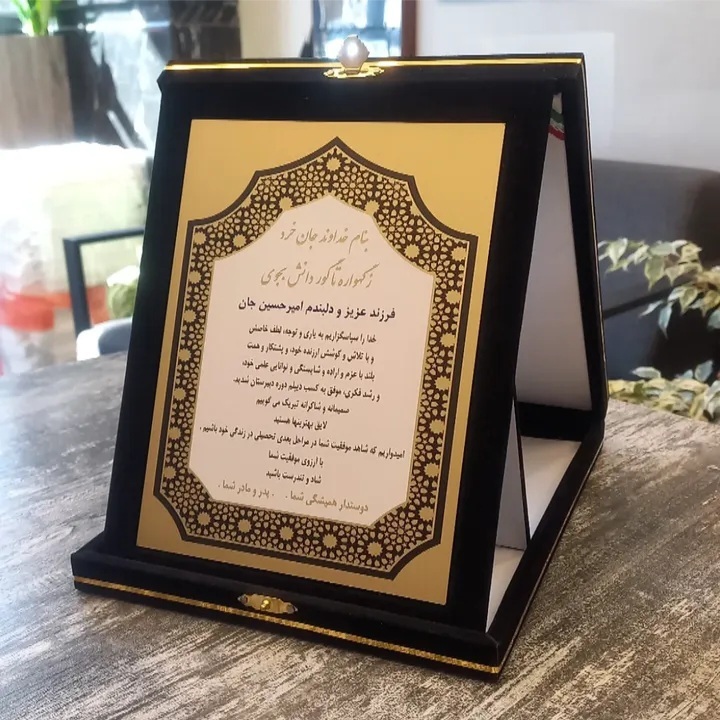 بنام خداوند جان خرد
ز گهواره تا گور دانش بجوی
فرزند عزیز و دلبندم امیرحسین جان
خدا را سپاسگزاریم به یاری و توجه، لطف خاصش
و با تلاش و کوشش ارزنده خود، و پشتکار و همت
بلند با عزم و اراده و شایستگی و توانایی علمی خود،
و رشد فکری، موفق به کسب دیپلم دوره دبیرستان شدید.
صمیمانه و شاکرانه تبریک می گوییم
لایق بهترینها هستید
امیدواریم که شاهد موفقیت شما در مراحل بعدی تحصیلی در زندگی خود باشیم .
با آرزوی موفقیت شما
شاد و تندرست باشید
دوستدار همیشگی شما . . پدر و مادر شما .